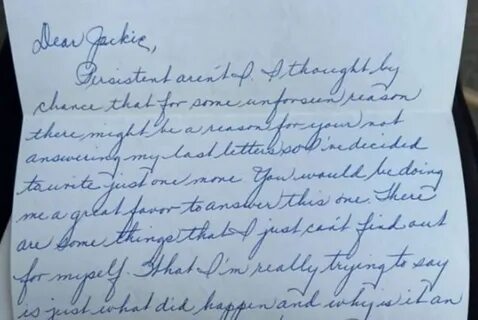 Dear Jackie,
Persistent aren't I. I thought by
chance that for some unforseen reason
there might be a reason for your not
answering my last letters so I've decided
to write just one more. You would be doing
me a great favor to answer this one. There
are some things that I just can't find out
for myself. What I'm really trying to say
is just what did happen and why is it an